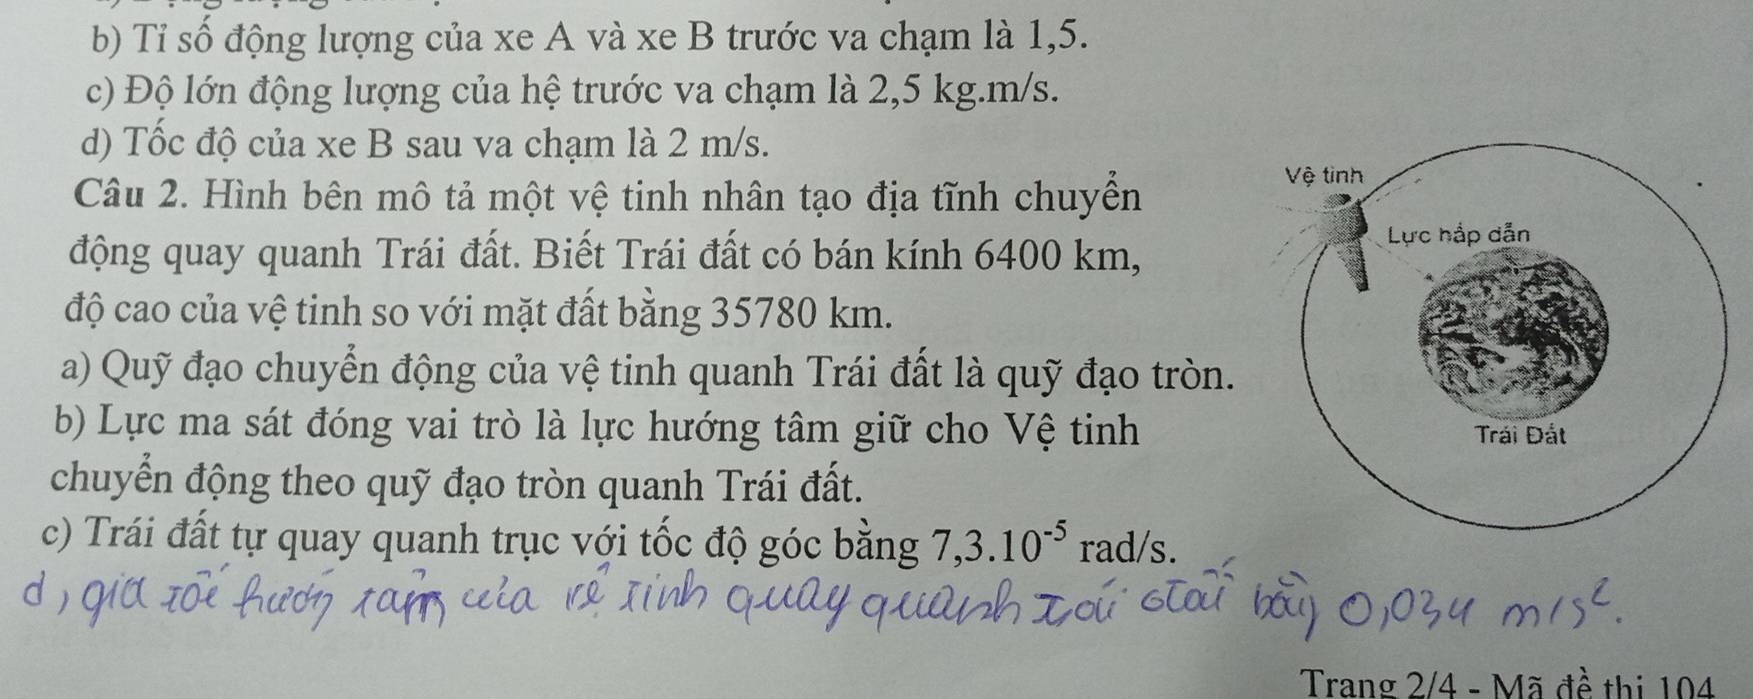 b) Tỉ số động lượng của xe A và xe B trước va chạm là 1,5.
c) Độ lớn động lượng của hệ trước va chạm là 2,5 kg.m/s.
d) Tốc độ của xe B sau va chạm là 2 m/s.
Câu 2. Hình bên mô tả một vệ tinh nhân tạo địa tĩnh chuyển
động quay quanh Trái đất. Biết Trái đất có bán kính 6400 km,
độ cao của vệ tinh so với mặt đất bằng 35780 km.
Vệ tinh
Lực hấp dẫn
Trái Đất
a) Quỹ đạo chuyển động của vệ tinh quanh Trái đất là quỹ đạo tròn.
b) Lực ma sát đóng vai trò là lực hướng tâm giữ cho Vệ tinh
chuyển động theo quỹ đạo tròn quanh Trái đất.
c) Trái đất tự quay quanh trục với tốc độ góc bằng 7,3.10⁻⁵ rad/s.
d, gia tốc hướng tâm của vệ tinh quay quanh trái đất bằng 0,034 m/s².
Trang 2/4 - Mã đề thi 104